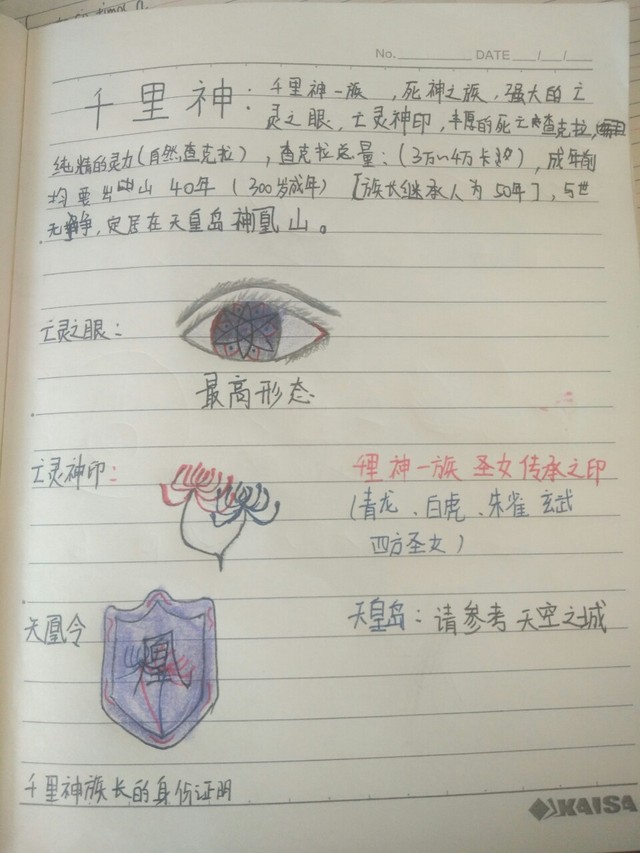 No. DATE / /
千里神: 千里神一族,死神之族,强大的亡
灵之眼,亡灵神印,丰厚的死亡查克拉,
纯精的灵力(自然查克拉),查克拉总量:(3万~4万卡),成年前
均要出山40年(300岁成年)[族长继承人为50年],与世
无争,定居在天皇岛神凰山。
亡灵之眼:
最高形态
亡灵神印:
千里神一族 圣女传承之印
(青龙、白虎、朱雀 玄武
四方圣女)
天凰令
凰
天皇岛:请参考天空之城
千里神族长的身份证明
KAISA